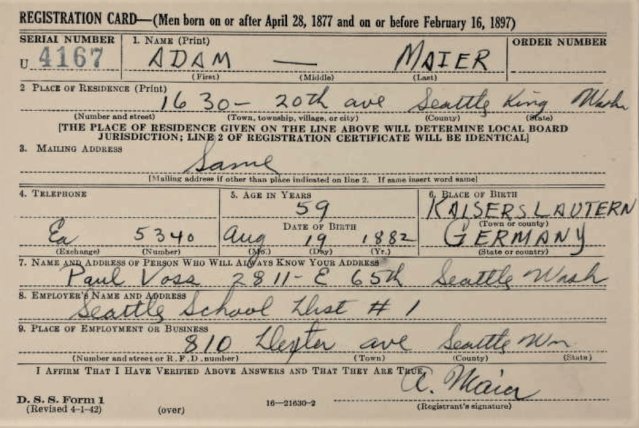 REGISTRATION CARD—(Men born on or after April 28, 1877 and on or before February 16, 1897)
SERIAL NUMBER 1. NAME (Print) ORDER NUMBER
U 4167 ADAM — MAIER
(First) (Middle) (Last)
2 PLACE OF RESIDENCE (Print)
1630- 20th ave Seattle King Wash
(Number and street) (Town, township, village, or city) (County) (State)
[THE PLACE OF RESIDENCE GIVEN ON THE LINE ABOVE WILL DETERMINE LOCAL BOARD
JURISDICTION; LINE 2 OF REGISTRATION CERTIFICATE WILL BE IDENTICAL]
3. MAILING ADDRESS
Same
[Mailing address if other than place indicated on line 2. If same insert word same]
4. TELEPHONE 5. AGE IN YEARS 6. PLACE OF BIRTH
59 KAISERSLAUTERN
DATE OF BIRTH (Town or county)
Ea 5340 Aug 19 1882 GERMANY
(Exchange) (Number) (Mo.) (Day) (Yr.) (State or country)
7. NAME AND ADDRESS OF PERSON WHO WILL ALWAYS KNOW YOUR ADDRESS
Paul Voss 2811-E 65th Seattle Wash
8. EMPLOYER'S NAME AND ADDRESS
Seattle School Dist # 1
9. PLACE OF EMPLOYMENT OR BUSINESS
810 Dexter ave Seattle Wn.
(Number and street or R.F.D. number) (Town) (County) (State)
I AFFIRM THAT I HAVE VERIFIED ABOVE ANSWERS AND THAT THEY ARE TRUE.
A. Maier
D. S. S. Form 1
(Revised 4-1-42) (over) 16—21630-2 (Registrant's signature)